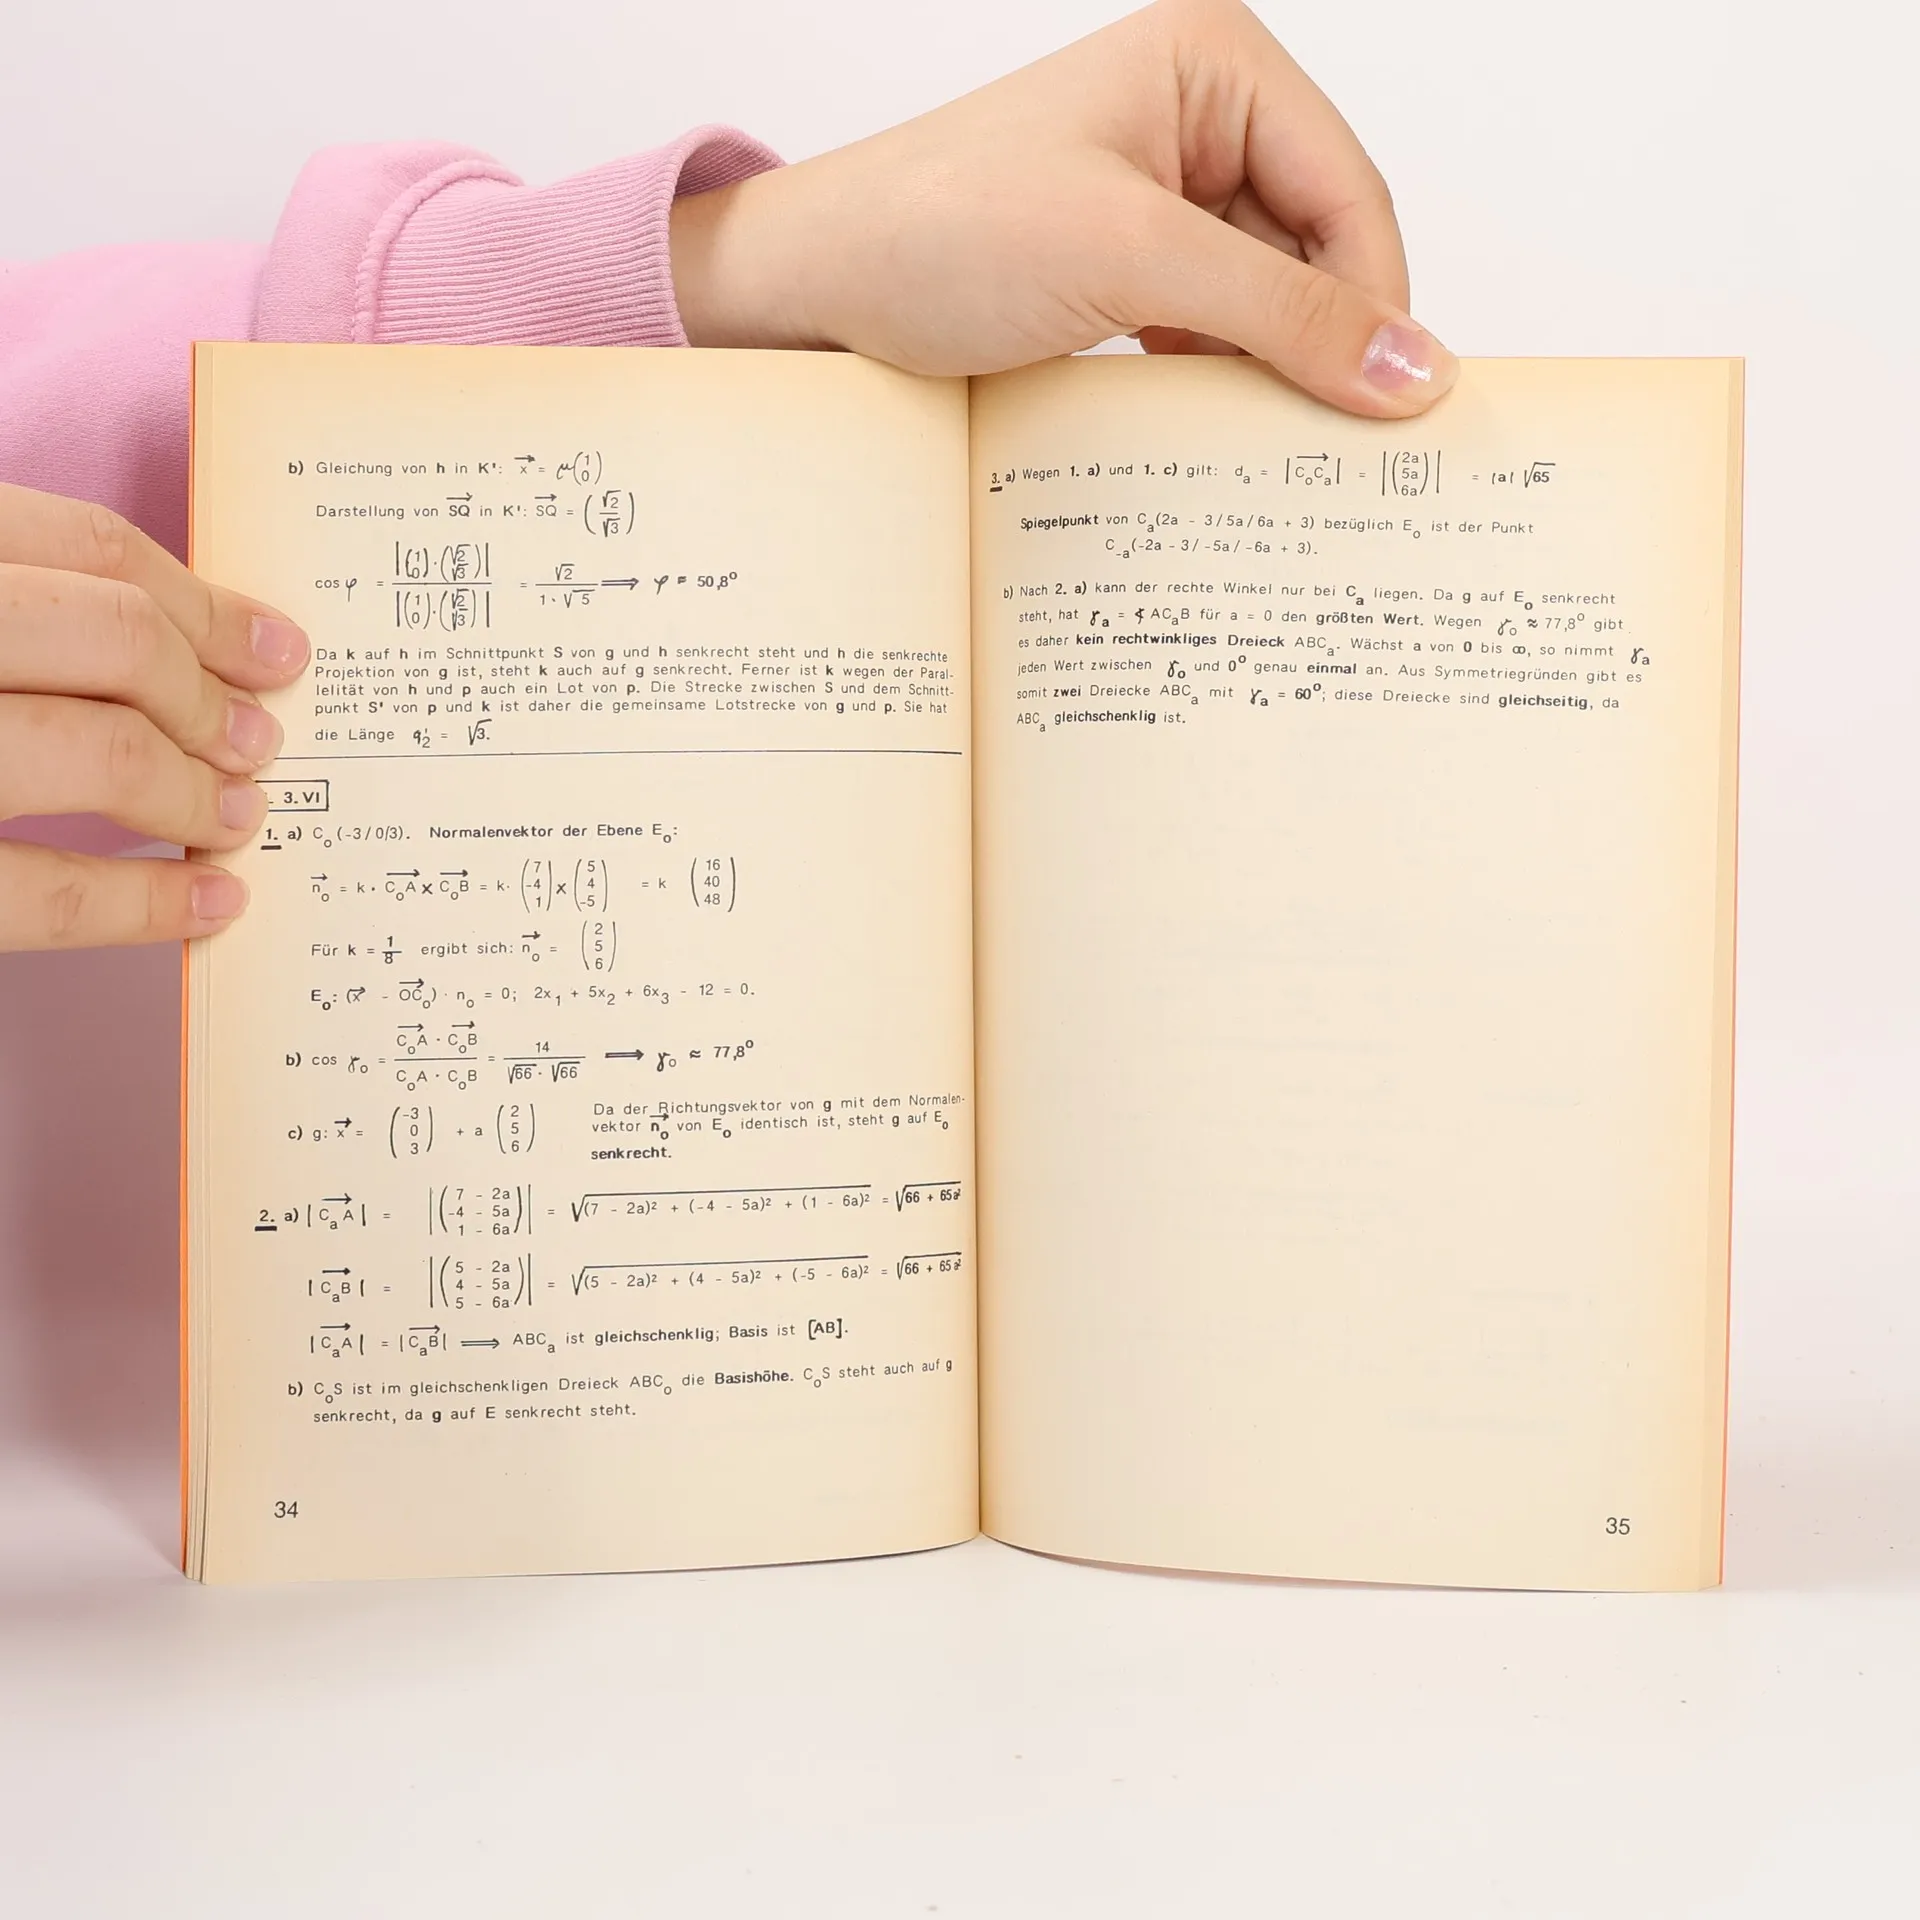 b) Gleichung von h in K': x⃗ = μ(1 0)
Darstellung von SQ⃗ in K': SQ⃗ = (√2 √3)
cos φ = |(1 0)·(√2 √3)| / |(1 0)·(√2 √3)| = √2 / 1·√5 ⟹ φ = 50,8°
Da k auf h im Schnittpunkt S von g und h senkrecht steht und h die senkrechte
Projektion von g ist, steht k auch auf g senkrecht. Ferner ist k wegen der Paral-
lelität von h und p auch ein Lot von p. Die Strecke zwischen S und dem Schnitt-
punkt S' von p und k ist daher die gemeinsame Lotstrecke von g und p. Sie hat
die Länge q₂' = √3.
3. VI
1. a) C₀(-3/0/3). Normalenvektor der Ebene E₀:
n₀⃗ = k · C₀A⃗ x C₀B⃗ = k · (7 -4 1) x (5 4 -5) = k (16 40 48)
Für k = 1/8 ergibt sich: n₀⃗ = (2 5 6)
E₀: (x⃗ - OC₀⃗) · n₀ = 0; 2x₁ + 5x₂ + 6x₃ - 12 = 0.
b) cos γ₀ = C₀A⃗ · C₀B⃗ / C₀A · C₀B = 14 / √66 · √66 ⟹ γ₀ ≈ 77,8°
c) g: x⃗ = (-3 0 3) + a (2 5 6) Da der Richtungsvektor von g mit dem Normalen-
vektor n₀⃗ von E₀ identisch ist, steht g auf E₀
senkrecht.
2. a) |CₐA⃗| = |(7 - 2a -4 - 5a 1 - 6a)| = √(7 - 2a)² + (-4 - 5a)² + (1 - 6a)² = √66 + 65a²
|CₐB⃗| = |(5 - 2a 4 - 5a 5 - 6a)| = √(5 - 2a)² + (4 - 5a)² + (-5 - 6a)² = √66 + 65a²
|CₐA⃗| = |CₐB⃗| ⟹ ABCₐ ist gleichschenklig; Basis ist [AB].
b) C₀S ist im gleichschenkligen Dreieck ABC₀ die Basishöhe. C₀S steht auch auf g
senkrecht, da g auf E senkrecht steht.
34
3. a) Wegen 1. a) und 1. c) gilt: dₐ = |C₀Cₐ⃗| = |(2a 5a 6a)| = |a| √65
Spiegelpunkt von Cₐ(2a - 3/5a/6a + 3) bezüglich E₀ ist der Punkt
C₋ₐ(-2a - 3/ -5a/ -6a + 3).
b) Nach 2. a) kann der rechte Winkel nur bei Cₐ liegen. Da g auf E₀ senkrecht
steht, hat γₐ = ∢ ACₐB für a = 0 den größten Wert. Wegen γ₀ ≈ 77,8° gibt
es daher kein rechtwinkliges Dreieck ABCₐ. Wächst a von 0 bis ∞, so nimmt γₐ
jeden Wert zwischen γ₀ und 0° genau einmal an. Aus Symmetriegründen gibt es
somit zwei Dreiecke ABCₐ mit γₐ = 60°; diese Dreiecke sind gleichseitig, da
ABCₐ gleichschenklig ist.
35